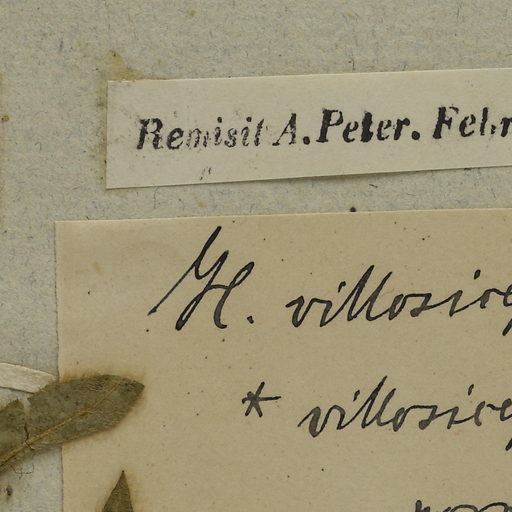 Remisit A. Peter. Febr
H. villosice
* villosice